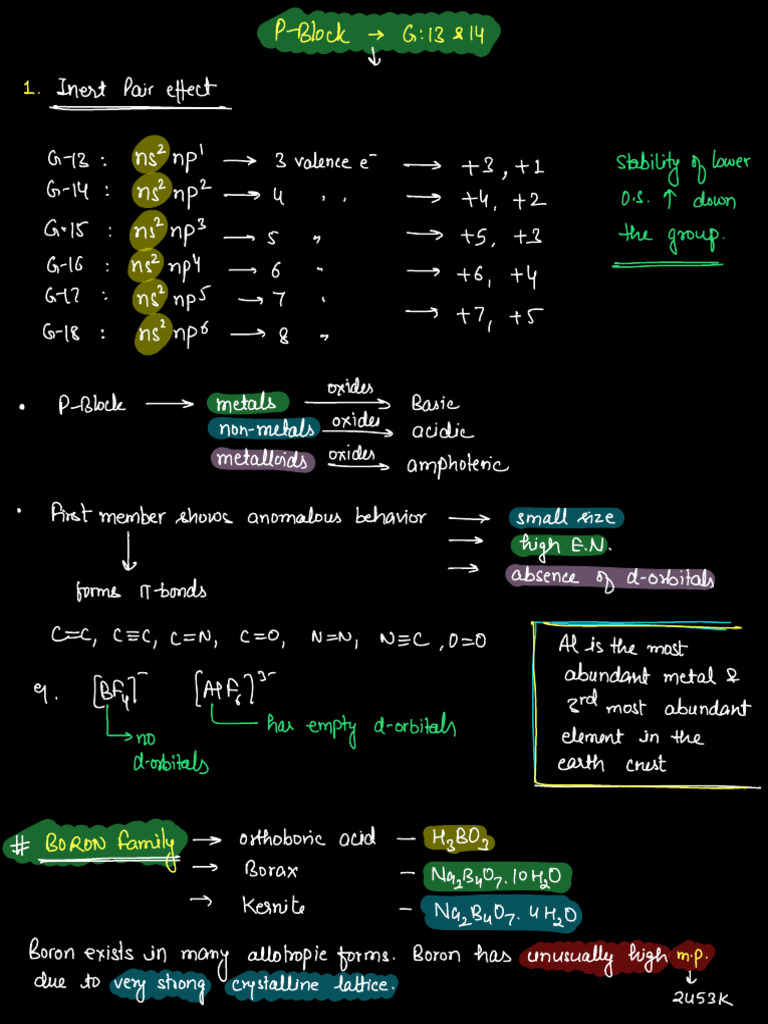 P-Block → G:13 & 14
1. Inert Pair effect
G-13 : ns² np¹ → 3 valence e⁻ → +3, +1
G-14 : ns² np² → 4 " → +4, +2
G-15 : ns² np³ → 5 " → +5, +3
G-16 : ns² np⁴ → 6 " → +6, +4
G-17 : ns² np⁵ → 7 " → +7, +5
G-18 : ns² np⁶ → 8 "
Stability of lower
O.S. ↑ down
the group.
• P-Block → metals oxides → Basic
non-metals oxides → acidic
metalloids oxides → amphoteric
• First member shows anomalous behavior → small size
→ high E.N.
→ absence of d-orbitals
↓
forms π-bonds
C=C, C≡C, C=N, C=O, N=N, N≡C, O=O
eg. [BF₄]⁻ [AlF₆]³⁻
has empty d-orbitals
no
d-orbitals
Al is the most
abundant metal &
3rd most abundant
element in the
earth crust
# BORON family → orthoboric acid – H₃BO₃
→ Borax – Na₂B₄O₇.10H₂O
→ Kernite – Na₂B₄O₇.4H₂O
Boron exists in many allotropic forms. Boron has unusually high m.p.
due to very strong crystalline lattice.
↓
2453K